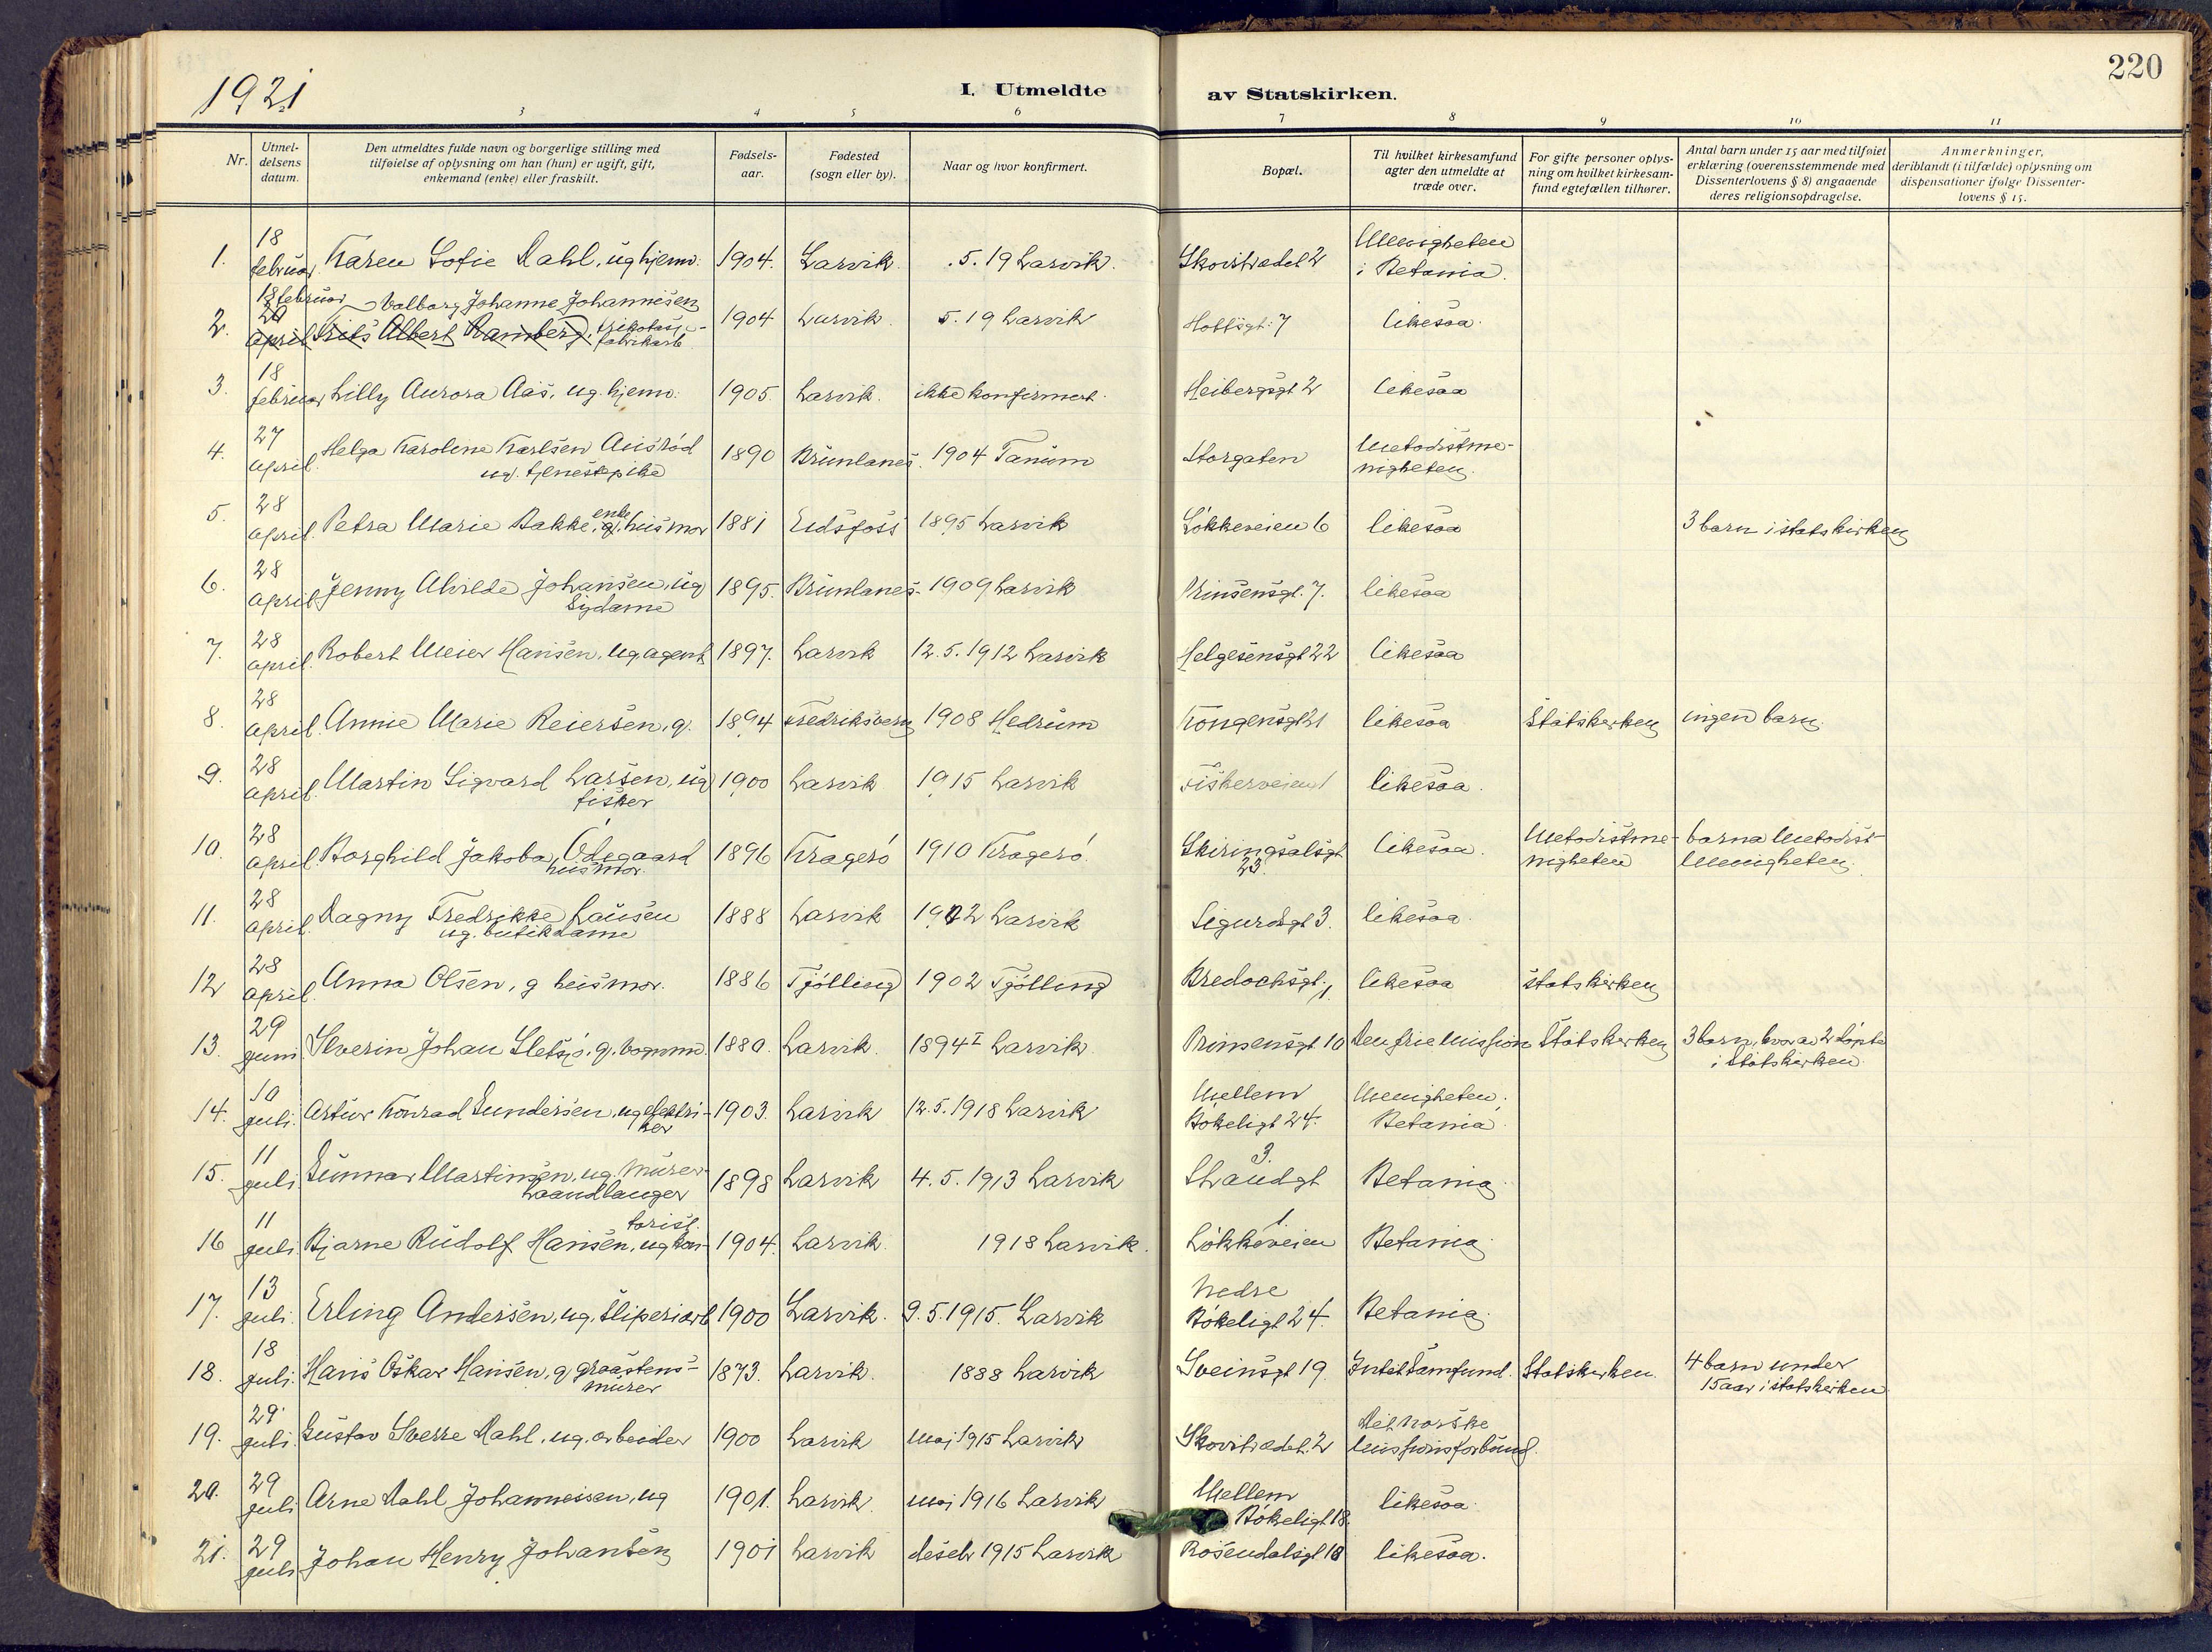 1921
I. Utmeldte av Statskirken.
220
3 4 5 6 7 8 9 10 11
Nr.
Utmel-
delsens
datum.
Den utmeldtes fulde navn og borgerlige stilling med
tilføielse af oplysning om han (hun) er ugift, gift,
enkemand (enke) eller fraskilt.
Fødsels-
aar.
Fødested
(sogn eller by).
Naar og hvor konfirmert.
Bopæl.
Til hvilket kirkesamfund
agter den utmeldte at
træde over.
For gifte personer oplys-
ning om hvilket kirkesam-
fund egtefællen tilhører.
Antal barn under 15 aar med tilføiet
erklæring (overensstemmende med
Dissenterlovens § 8) angaaende
deres religionsopdragelse.
Anmerkninger,
deriblandt (i tilfælde) oplysning om
dispensationer ifølge Dissenter-
lovens § 15.
18 Menigheten
1. februar. Karen Sofie Dahl, ug hjemv. 1904. Larvik. .5.19 Larvik. Skovstrædet 2 i Betania.
18 februar Valborg Johanne Johannesen
2. 20 april Frits Albert Ramberg, trikotasje- 1904 Larvik. 5.19 Larvik Hoffsgt. 7 likesaa.
fabrikarb
18
3. februar Lilly Aurora Aas, ug. hjemv. 1905. Larvik. ikke konfirmert. Heibergsgt 2 likesaa
27 Metodistme-
4. april. Helga Karoline Karlsen Ausrød 1890 Brunlanes. 1904 Tanum Storgaten nigheten.
ug. tjenestepike
28 enke
5. april. Petra Marie Bakke, g. husmor 1881 Eidsfoss 1895 Larvik Løkkeveien 6 likesaa 3 barn i statskirken
28
6. april Jenny Alvilde Johansen, ug 1895. Brunlanes. 1909 Larvik Prinsensgt. 7. likesaa
sydame
28
7. april. Robert Meier Hansen, ug, agent 1897. Larvik 12.5.1912 Larvik Helgesensgt 22 likesaa
28
8. april. Annie Marie Reiersen, g. 1894 Fredriksvern 1908 Hedrum Kongensgt 21 likesaa Statskirken ingen barn.
28
9. april. Martin Sigvard Larsen, ug 1900 Larvik 1915 Larvik Fiskerveien 1 likesaa.
fisker
28 Metodistme- barna Metodist-
10. april Borghild Jakoba Ødegaard 1896 Kragerø 1910 Kragerø. Skiringsalsgt likesaa. nigheten Menigheten.
husmor. 23.
28
11. april. Dagny Fredrikke Lausen 1888 Larvik 1902 Larvik Sigurdsgt 3. likesaa.
ug. butikdame
28
12 april. Anna Olsen, g husmor. 1886 Tjølling 1902 Tjølling Bredochsgt. 1. likesaa statskirken
29
13. juni Severin Johan Sletsjø, g. vognm. 1880. Larvik. 1894 I Larvik. Prinsensgt 10 Den frie Mission Statskirken 3 barn, hvorav 2 døpte
i Statskirken
10 Mellem Menigheten
14. juli. Artur Konrad Gundersen, ug elektri- 1903. Larvik 12.5.1918 Larvik Bøkeligt 24. Betania.
ker
11 3.
15. juli Gunnar Martinsen, ug. murer- 1898 Larvik 4.5.1913 Larvik Strandgt Betania
haandlanger
11 torist. 1.
16 juli. Bjarne Rudolf Hansen, ug kon- 1904. Larvik. 1918 Larvik. Løkkeveien Betania.
13 Nedre
17. juli. Erling Andersen, ug. sliperiarb 1900 Larvik. 9.5.1915. Larvik Bøkeligt 24. Betania.
18 4 barn under
18. juli. Hans Oskar Hansen, g graastens- 1873. Larvik. 1888 Larvik Sveinsgt 19. Intet Samfund. Statskirken. 15 aar i statskirken
murer
29 Det norske
19. juli. Gustav Sverre Dahl, ug. arbeider 1900 Larvik mai 1915 Larvik Skovstrædet. 2 Missionsforbund.
29 Mellem
20. juli Arne Dahl Johannessen, ug 1901. Larvik. mai 1916 Larvik Bøkeligt 18. likesaa.
29
21. juli Johan Henry Johansen 1901 Larvik desebr 1915 Larvik Rosendalsgt 18 likesaa.